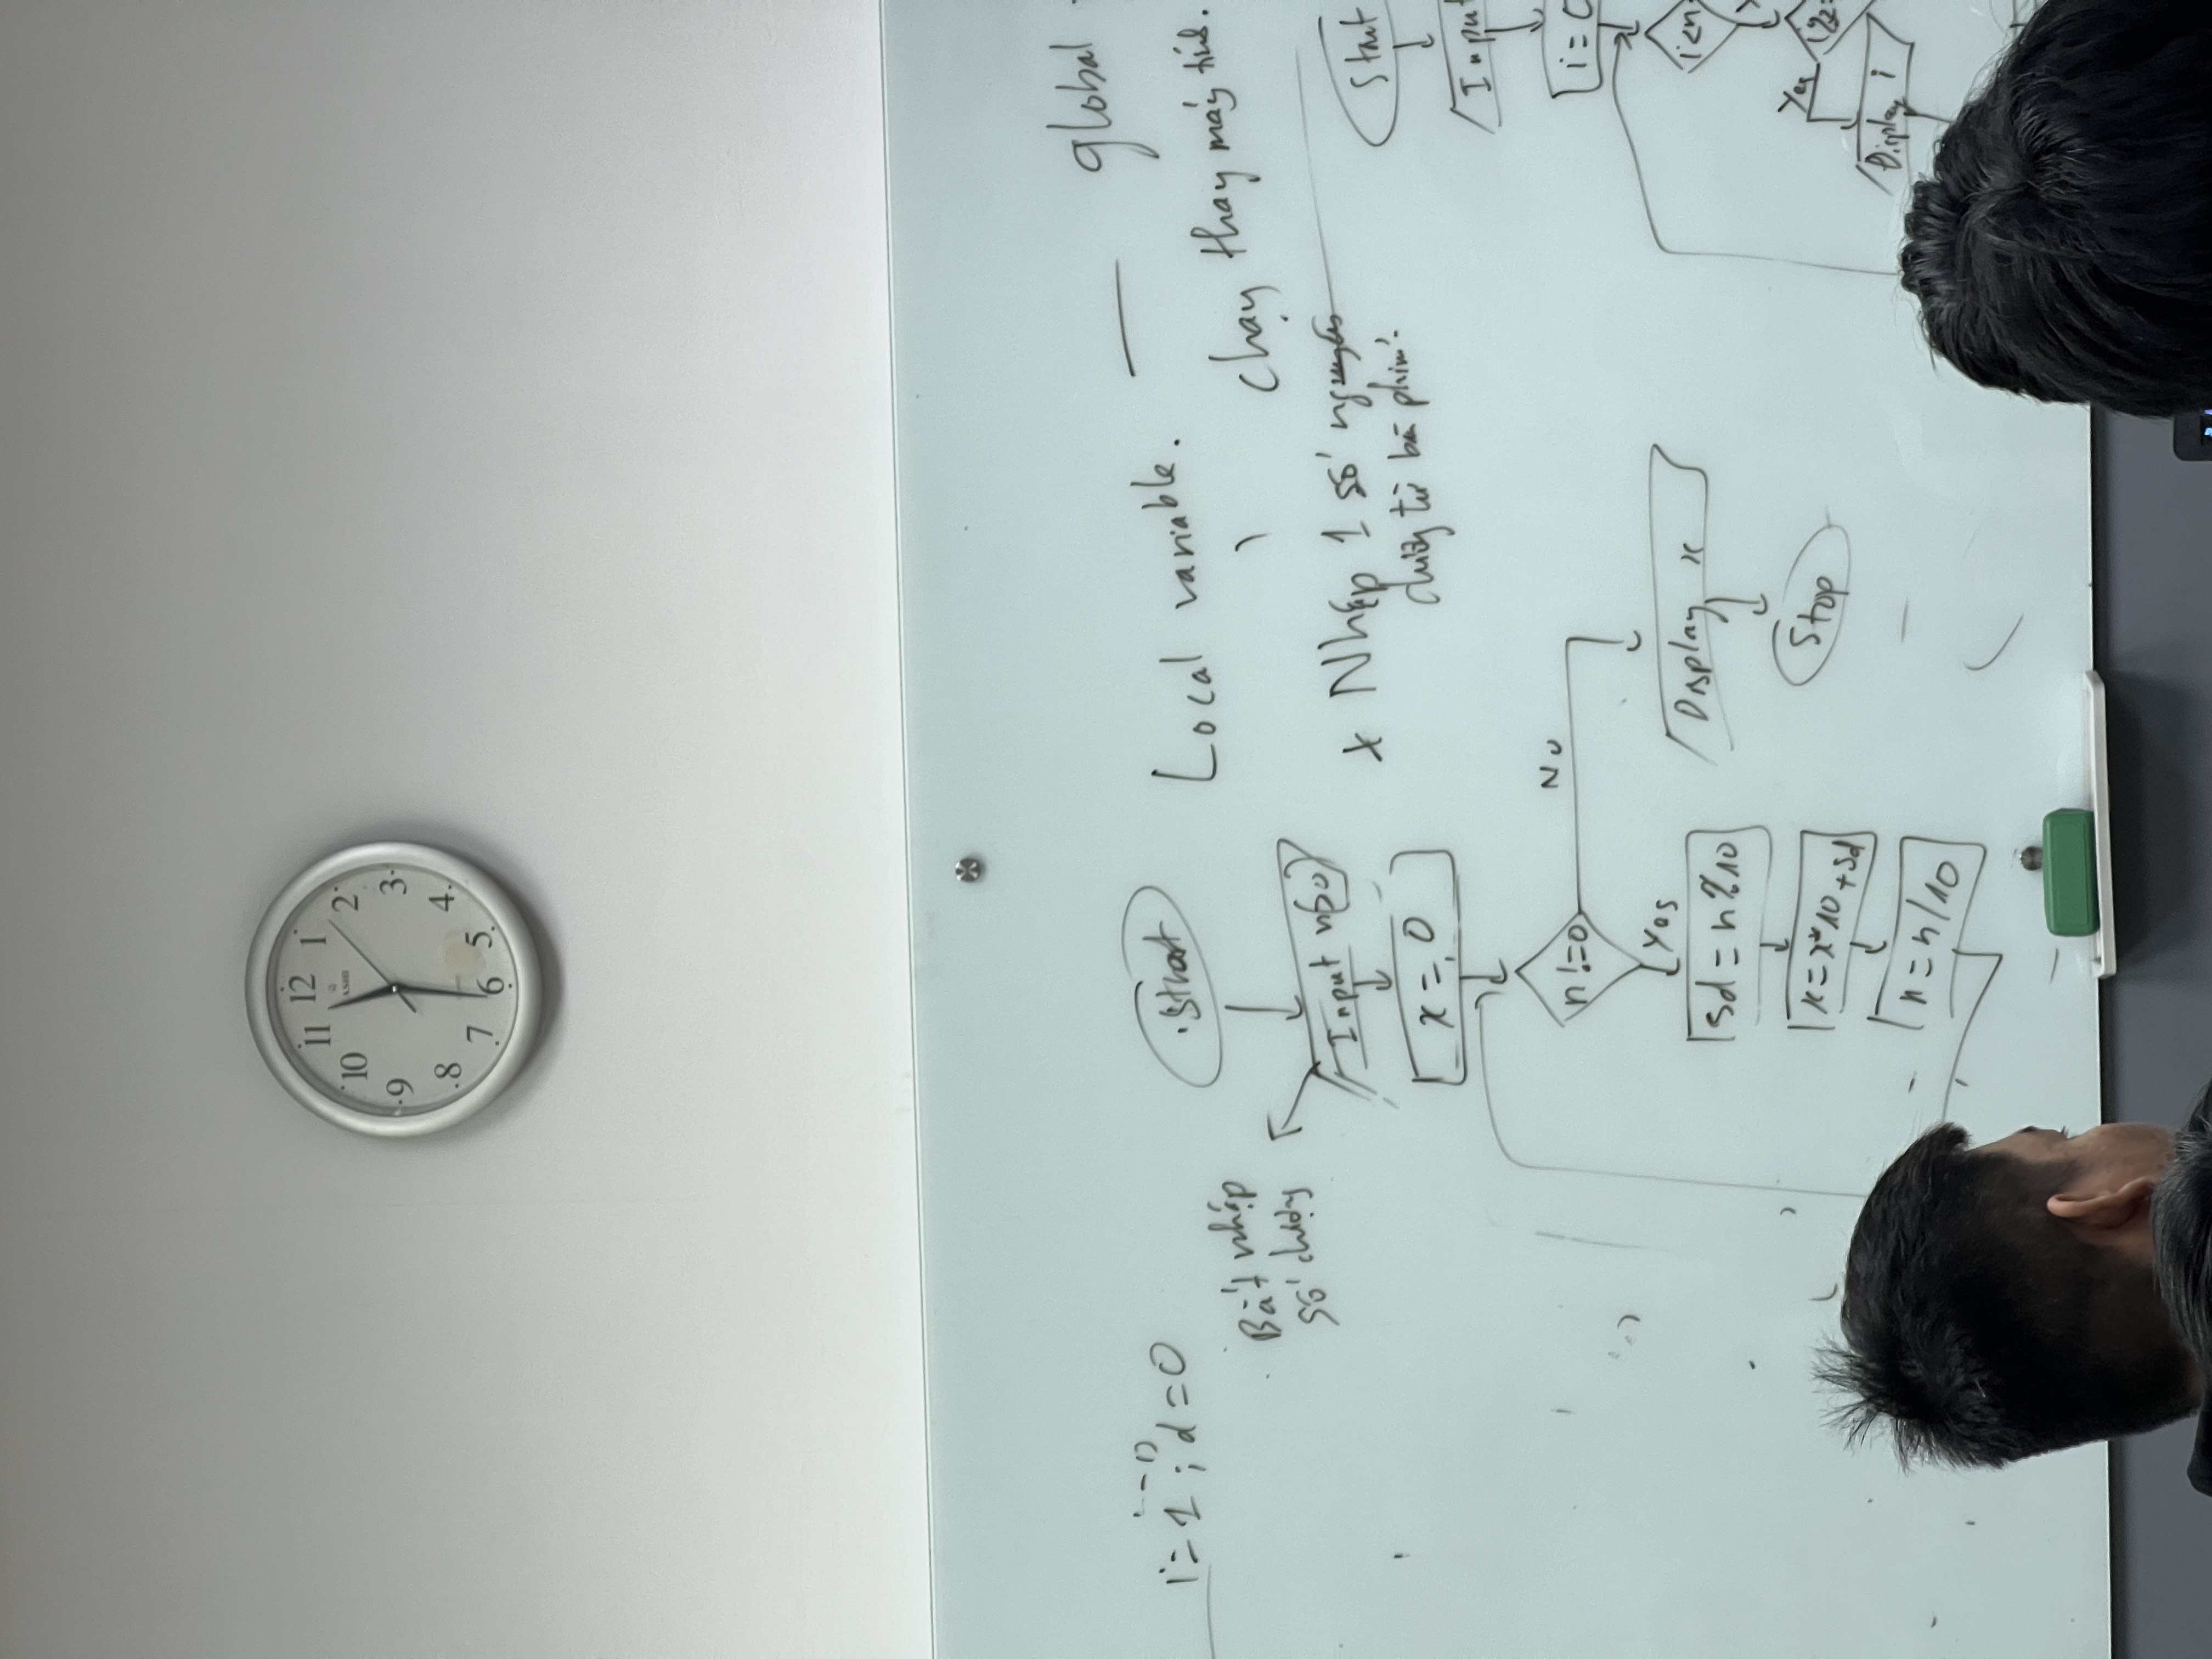 12
11
1
10
2
9
3
8
4
7
5
6
ASHI
i=1; d=0
Bắt nhập
số
Start
Input n(>0)
x=0
n!=0
No
Yes
sd=n%10
x=x*10+sd
n=n/10
Display x
Stop
Local variable. — global
chạy thay máy tính.
* Nhập 1 số
từ bàn phím.
Start
Input
i=0
i<n
Yes
Display i